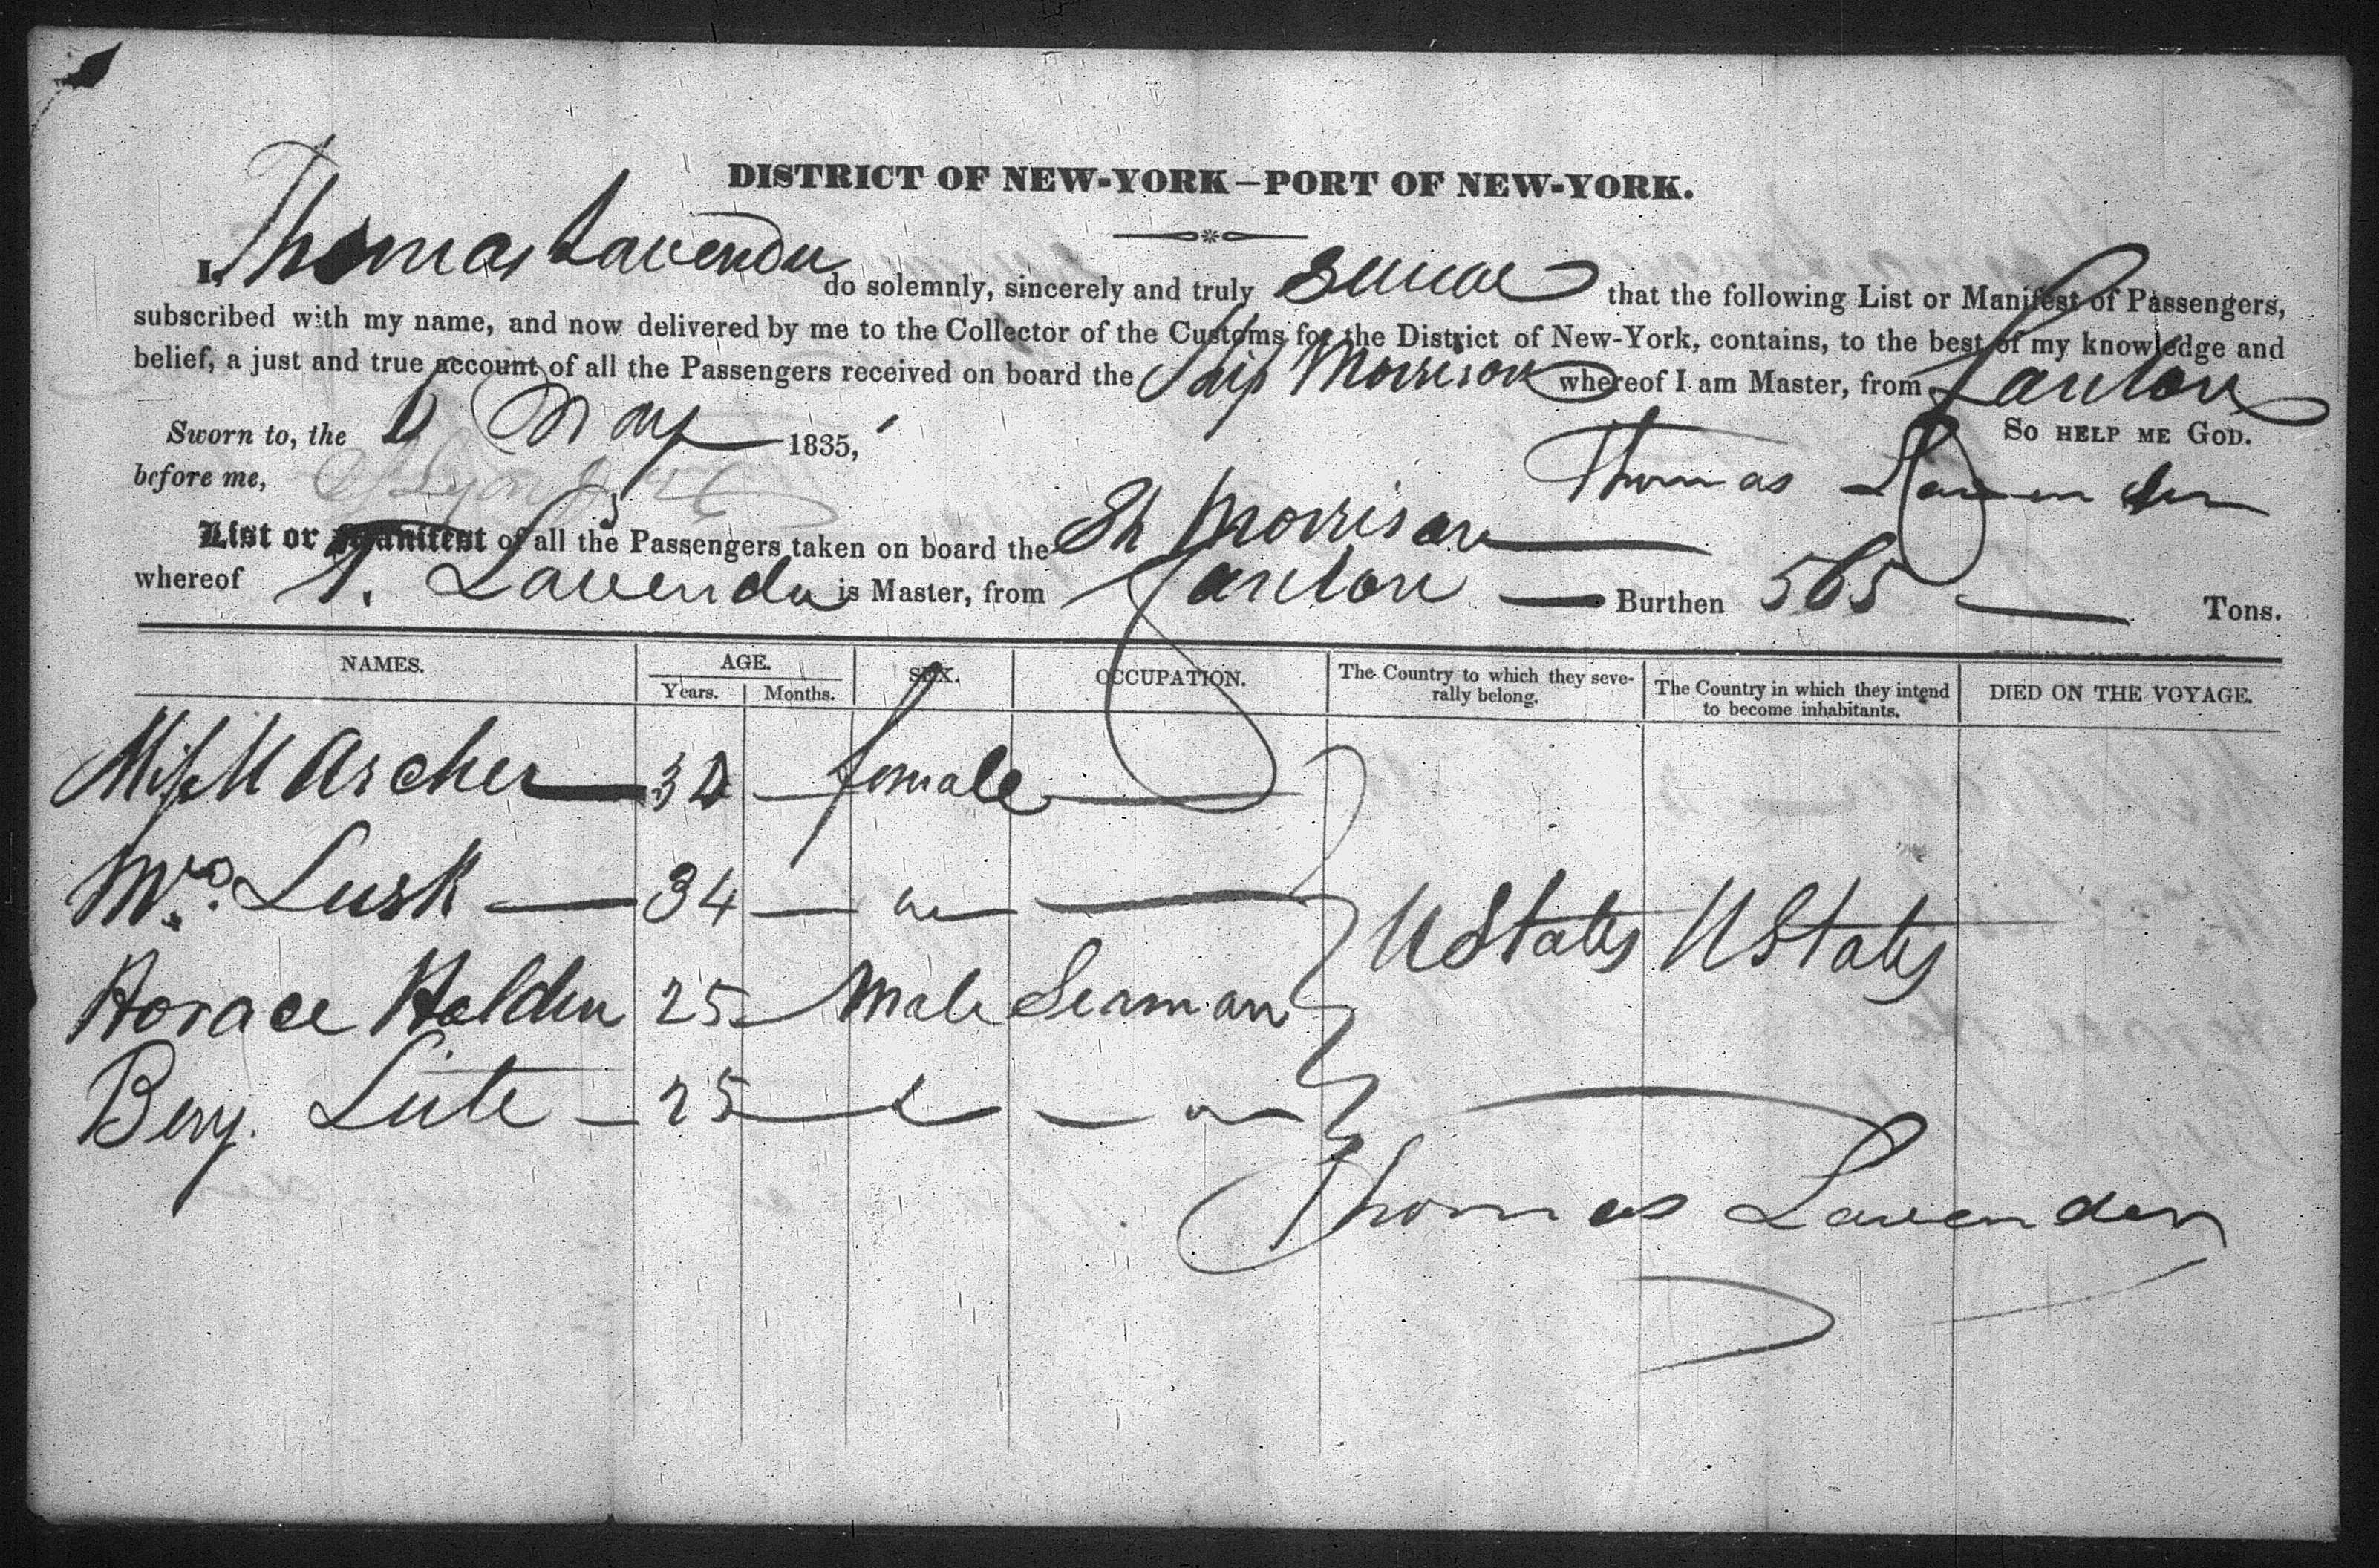 DISTRICT OF NEW-YORK—PORT OF NEW-YORK.
I, Thomas Lavender do solemnly, sincerely and truly swear that the following List or Manifest of Passengers,
subscribed with my name, and now delivered by me to the Collector of the Customs for the District of New-York, contains, to the best of my knowledge and
belief, a just and true account of all the Passengers received on board the Ship Morrison whereof I am Master, from Canton
Sworn to, the 6 May 1835, So HELP ME GOD.
before me, Thomas Lavender
List or Manifest of all the Passengers taken on board the Sh Morrison
whereof T. Lavender is Master, from Canton — Burthen 565 — Tons.
NAMES. AGE. SEX. OCCUPATION. The Country to which they seve-rally belong. The Country in which they intend to become inhabitants. DIED ON THE VOYAGE.
Years. Months.
Miss M Archer — female
Mrs. Lusk — 34 — UStates UStates
Horace Holden 25 — Male Seaman
Benj. — 25
Thomas Lavender